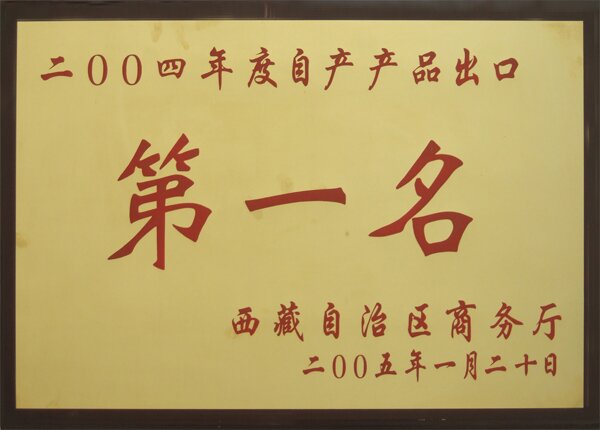 二00四年度自产产品出口
第一名
西藏自治区商务厅
二00五年一月二十日